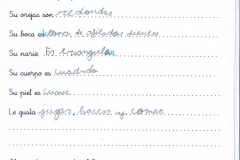 Su orejas son redondas
Su boca es llena de afilados dientes
Su narie Es triangular
Su cuerpo es cuadrado
Su piel es suave
Le gusta jugar, baces y comer